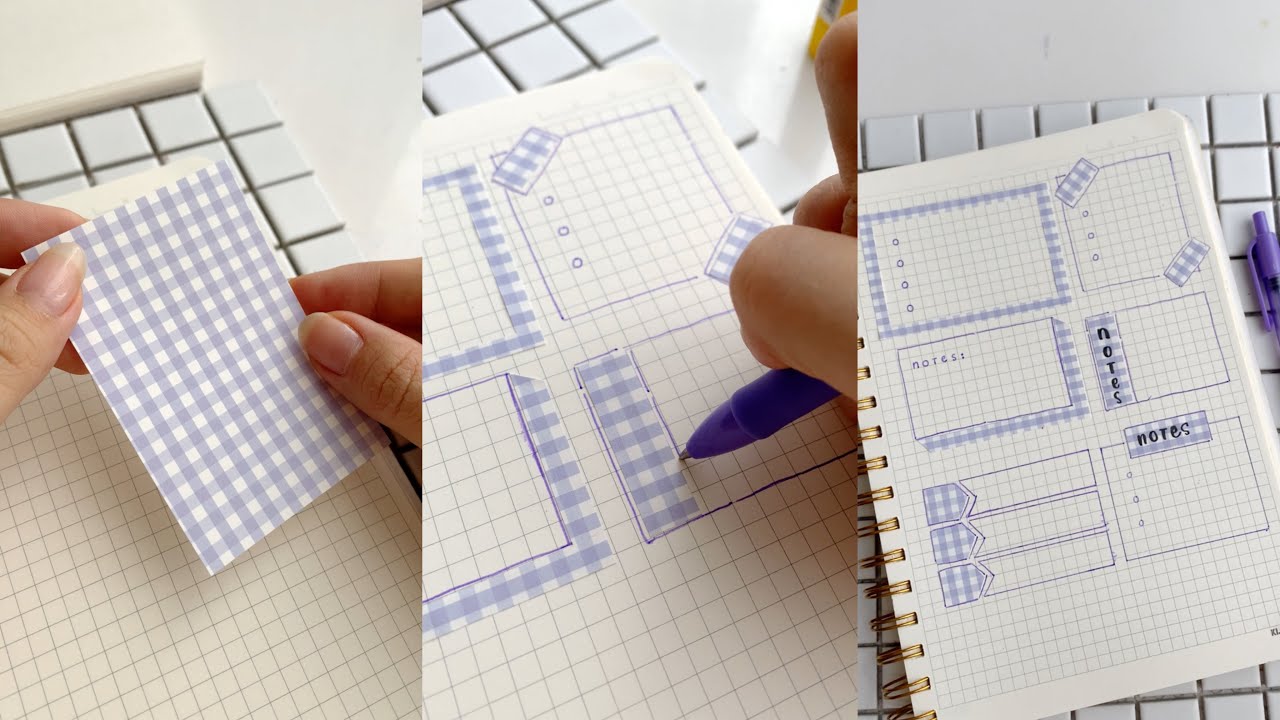 notes:
notes
notes